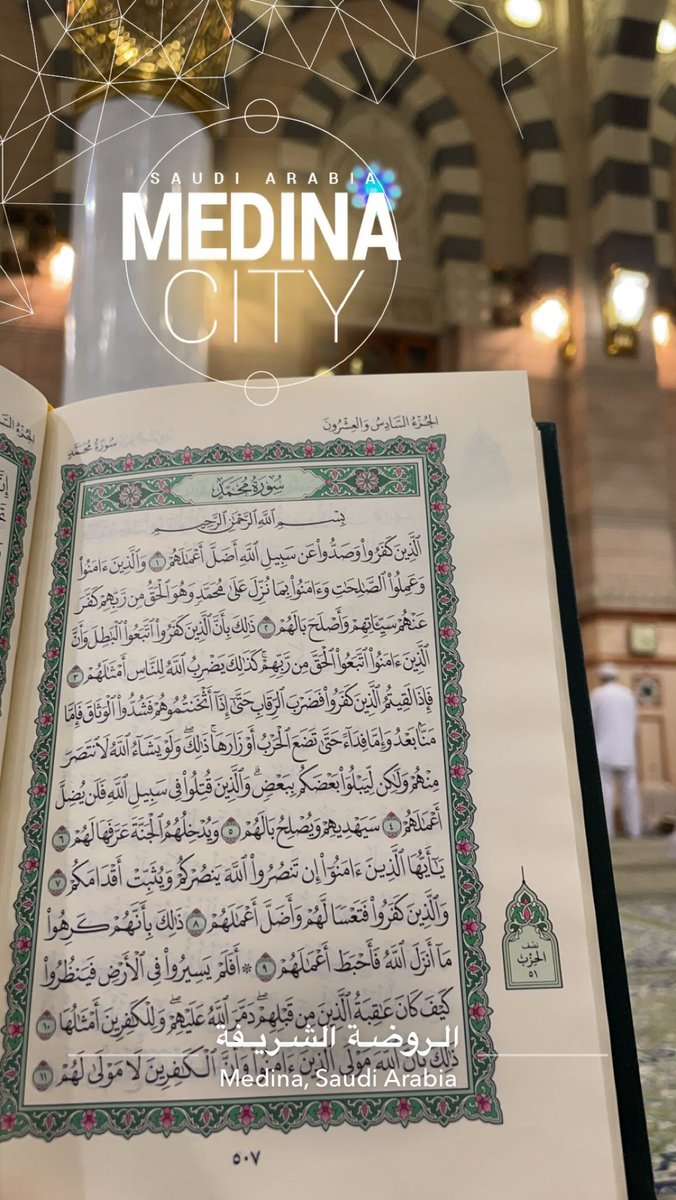 SAUDI ARABIA
MEDINA
CITY
الجُزْءُ السَّادِسُ وَالعِشْرُونَ
سُورَةُ مُحَمَّدٍ
سُورَةُ مُحَمَّدٍ
بِسْمِ ٱللَّهِ ٱلرَّحْمَٰنِ ٱلرَّحِيمِ
ٱلَّذِينَ كَفَرُوا۟ وَصَدُّوا۟ عَن سَبِيلِ ٱللَّهِ أَضَلَّ أَعْمَٰلَهُمْ ١ وَٱلَّذِينَ ءَامَنُوا۟
وَعَمِلُوا۟ ٱلصَّٰلِحَٰتِ وَءَامَنُوا۟ بِمَا نُزِّلَ عَلَىٰ مُحَمَّدٍ وَهُوَ ٱلْحَقُّ مِن رَّبِّهِمْ كَفَّرَ
عَنْهُمْ سَيِّـَٔاتِهِمْ وَأَصْلَحَ بَالَهُمْ ٢ ذَٰلِكَ بِأَنَّ ٱلَّذِينَ كَفَرُوا۟ ٱتَّبَعُوا۟ ٱلْبَٰطِلَ وَأَنَّ
ٱلَّذِينَ ءَامَنُوا۟ ٱتَّبَعُوا۟ ٱلْحَقَّ مِن رَّبِّهِمْ ۚ كَذَٰلِكَ يَضْرِبُ ٱللَّهُ لِلنَّاسِ أَمْثَٰلَهُمْ ٣
فَإِذَا لَقِيتُمُ ٱلَّذِينَ كَفَرُوا۟ فَضَرْبَ ٱلرِّقَابِ حَتَّىٰٓ إِذَآ أَثْخَنتُمُوهُمْ فَشُدُّوا۟ ٱلْوَثَاقَ فَإِمَّا
مَنًّۢا بَعْدُ وَإِمَّا فِدَآءً حَتَّىٰ تَضَعَ ٱلْحَرْبُ أَوْزَارَهَا ۚ ذَٰلِكَ ۖ وَلَوْ يَشَآءُ ٱللَّهُ لَٱنتَصَرَ
مِنْهُمْ وَلَٰكِن لِّيَبْلُوَا۟ بَعْضَكُم بِبَعْضٍ ۗ وَٱلَّذِينَ قُتِلُوا۟ فِى سَبِيلِ ٱللَّهِ فَلَن يُضِلَّ
أَعْمَٰلَهُمْ ٤ سَيَهْدِيهِمْ وَيُصْلِحُ بَالَهُمْ ٥ وَيُدْخِلُهُمُ ٱلْجَنَّةَ عَرَّفَهَا لَهُمْ ٦
يَٰٓأَيُّهَا ٱلَّذِينَ ءَامَنُوٓا۟ إِن تَنصُرُوا۟ ٱللَّهَ يَنصُرْكُمْ وَيُثَبِّتْ أَقْدَامَكُمْ ٧
وَٱلَّذِينَ كَفَرُوا۟ فَتَعْسًا لَّهُمْ وَأَضَلَّ أَعْمَٰلَهُمْ ٨ ذَٰلِكَ بِأَنَّهُمْ كَرِهُوا۟
مَآ أَنزَلَ ٱللَّهُ فَأَحْبَطَ أَعْمَٰلَهُمْ ٩ ۞ أَفَلَمْ يَسِيرُوا۟ فِى ٱلْأَرْضِ فَيَنظُرُوا۟
كَيْفَ كَانَ عَٰقِبَةُ ٱلَّذِينَ مِن قَبْلِهِمْ ۚ دَمَّرَ ٱللَّهُ عَلَيْهِمْ ۖ وَلِلْكَٰفِرِينَ أَمْثَٰلُهَا ١٠
ذَٰلِكَ بِأَنَّ ٱللَّهَ مَوْلَى ٱلَّذِينَ ءَامَنُوا۟ وَأَنَّ ٱلْكَٰفِرِينَ لَا مَوْلَىٰ لَهُمْ ١١
نصف
الحزب
٥١
الروضة الشريفة
Medina, Saudi Arabia
٥٠٧